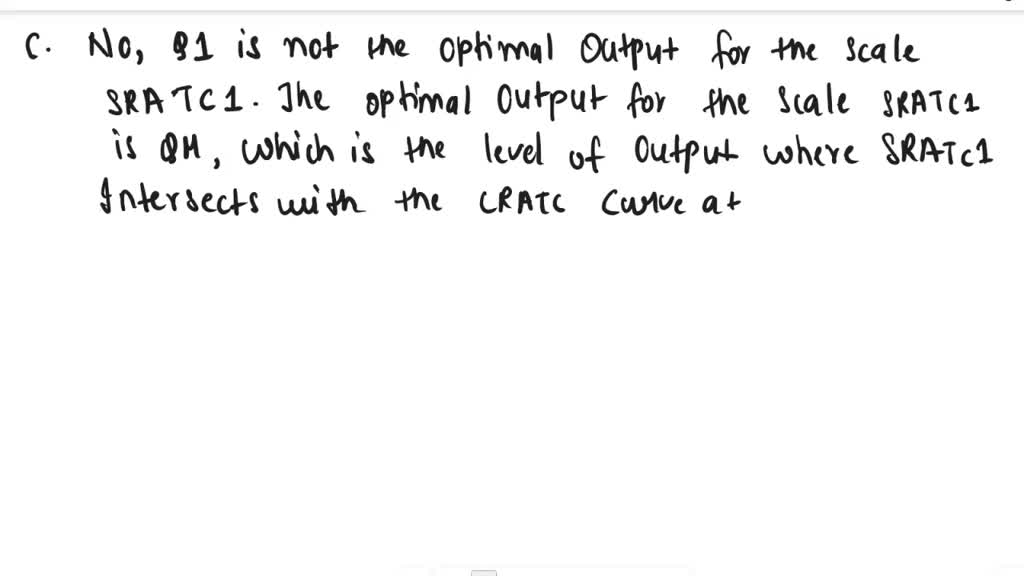 C. No, Q1 is not the optimal output for the scale
SRATC1. The optimal output for the scale SRATC1
is QM, which is the level of output where SRATC1
Intersects with the LRATC curve at